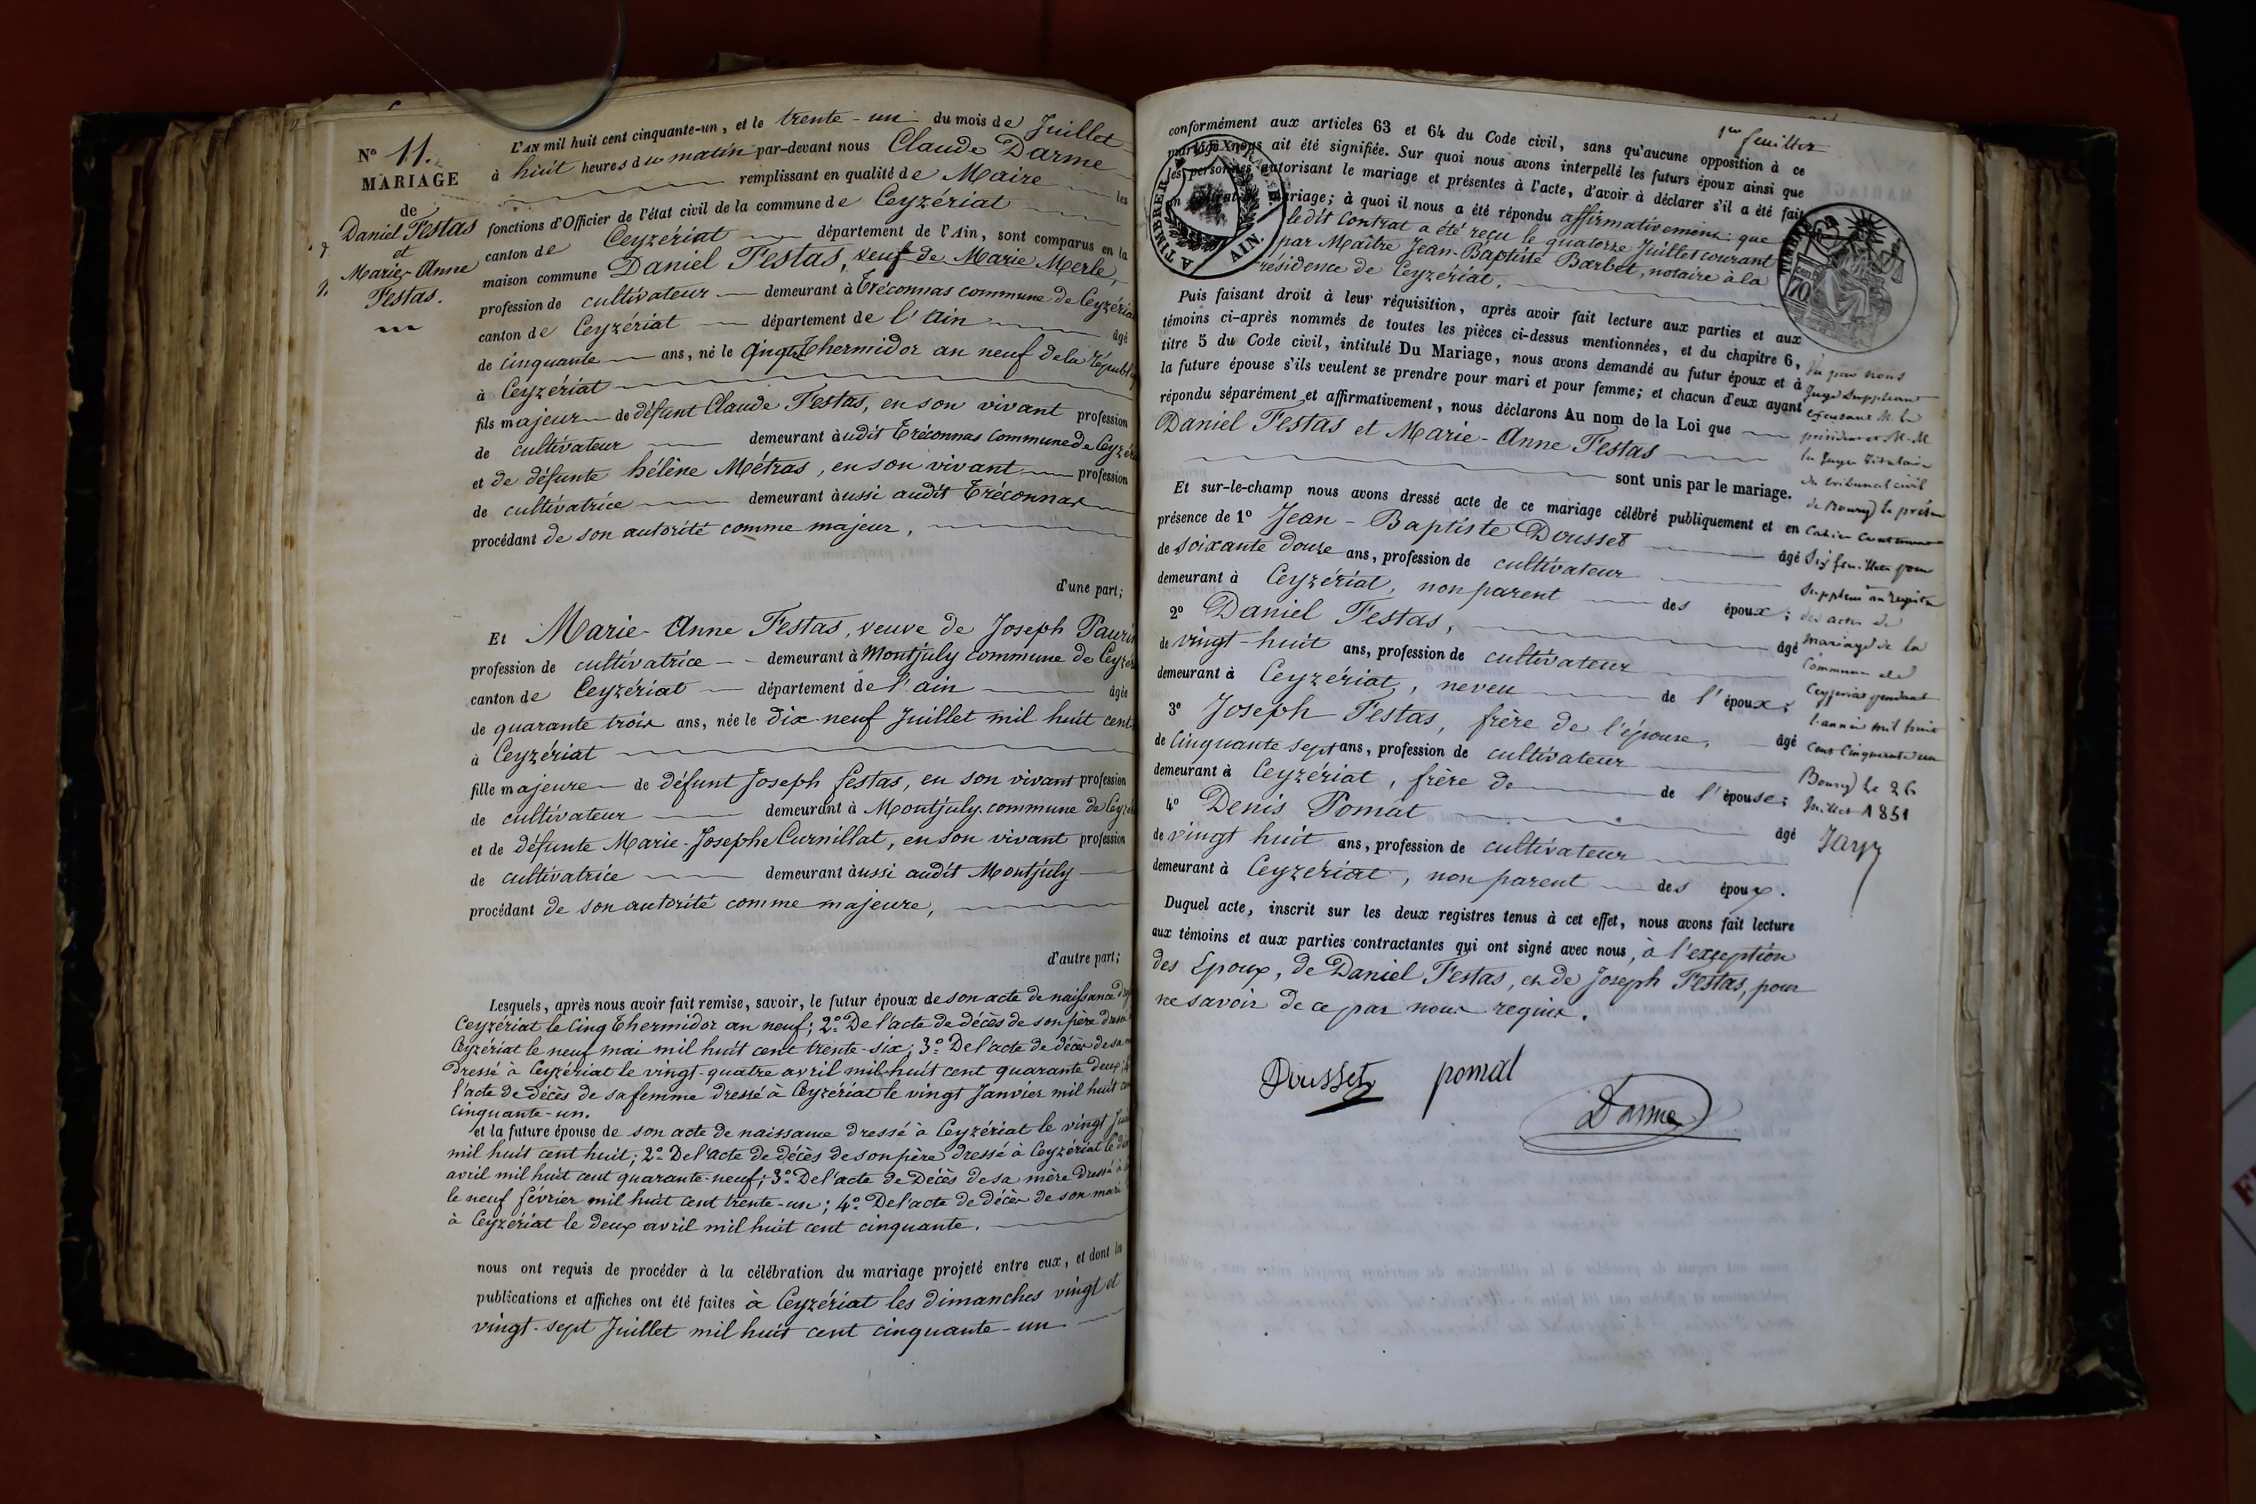 N° 11.
MARIAGE
de
Daniel Festas
et
Marie-Anne
Festas.
L'AN mil huit cent cinquante-un, et le trente-un du mois de Juillet
à huit heures du matin par-devant nous Claude Darme
remplissant en qualité de Maire les
fonctions d'Officier de l'état civil de la commune de Ceyzériat
canton de Ceyzériat département de l'Ain, sont comparus en la
maison commune Daniel Festas, veuf de Marie Merle,
profession de cultivateur demeurant à Tréconnas commune de Ceyzériat
canton de Ceyzériat département de l'Ain âgé
de cinquante ans, né le cinq Thermidor an neuf de la
à Ceyzériat
fils majeur de défunt Claude Festas, en son vivant profession
de cultivateur demeurant audit Tréconnas commune de
et de défunte hélène Métras, en son vivant profession
de cultivatrice demeurant aussi audit Tréconnas
procédant de son autorité comme majeur,
d'une part;
Et Marie-Anne Festas, veuve de Joseph
profession de cultivatrice demeurant à Montjuly commune de
canton de Ceyzériat département de l'ain âgée
de quarante trois ans, née le dix-neuf Juillet mil huit cent
à Ceyzériat
fille majeure de défunt Joseph festas, en son vivant profession
de cultivateur demeurant à Montjuly commune de
et de défunte Marie-Josephe Curnillat, en son vivant profession
de cultivatrice demeurant aussi audit Montjuly
procédant de son autorité comme majeure,
d'autre part;
Lesquels, après nous avoir fait remise, savoir, le futur époux de son acte de naissance
Ceyzériat le cinq Thermidor an neuf; 2° De l'acte de décès de son père
Ceyzériat le neuf mai mil huit cent trente-six; 3° De l'acte de décès de sa
dressé à Ceyzériat le vingt-quatre avril mil huit cent quarante deux;
l'acte de décès de sa femme dressé à Ceyzériat le vingt Janvier mil huit
cinquante-un.
et la future épouse de son acte de naissance dressé à Ceyzériat le vingt
mil huit cent huit; 2° De l'acte de décès de son père dressé à Ceyzériat le
avril mil huit cent quarante-neuf; 3° De l'acte de Décès de sa mère dressé à
le neuf février mil huit cent trente-un; 4° De l'acte de décès de son mari
à Ceyzériat le deux avril mil huit cent cinquante.
nous ont requis de procéder à la célébration du mariage projeté entre eux, et dont les
publications et affiches ont été faites à Ceyzériat les dimanches vingt et
vingt-sept Juillet mil huit cent cinquante-un
1er feuillet
conformément aux articles 63 et 64 du Code civil, sans qu'aucune opposition à ce
mariage nous ait été signifiée. Sur quoi nous avons interpellé les futurs époux ainsi que
les personnes autorisant le mariage et présentes à l'acte, d'avoir à déclarer s'il a été fait
un contrat de mariage; à quoi il nous a été répondu affirmativement: que
ledit contrat a été reçu le quatorze Juillet courant
par Maître Jean-Baptiste Barbet, notaire à la
résidence de Ceyzériat.
A TIMBRER
AIN.
TIMBRE
70
Puis faisant droit à leur réquisition, après avoir fait lecture aux parties et aux
témoins ci-après nommés de toutes les pièces ci-dessus mentionnées, et du chapitre 6,
titre 5 du Code civil, intitulé Du Mariage, nous avons demandé au futur époux et à
la future épouse s'ils veulent se prendre pour mari et pour femme; et chacun d'eux ayant
répondu séparément et affirmativement, nous déclarons Au nom de la Loi que
Daniel Festas et Marie-Anne Festas
sont unis par le mariage.
Et sur-le-champ nous avons dressé acte de ce mariage célébré publiquement et en
présence de 1° Jean-Baptiste Dousset âgé
de soixante douze ans, profession de cultivateur
demeurant à Ceyzériat, non parent des époux;
2° Daniel Festas, âgé
de vingt-huit ans, profession de cultivateur
demeurant à Ceyzériat, neveu de l'époux;
3° Joseph Festas, frère de l'épouse, âgé
de cinquante sept ans, profession de cultivateur
demeurant à Ceyzériat, frère de de l'épouse;
4° Denis Pomat âgé
de vingt huit ans, profession de cultivateur
demeurant à Ceyzeriat, non parent des époux.
Duquel acte, inscrit sur les deux registres tenus à cet effet, nous avons fait lecture
aux témoins et aux parties contractantes qui ont signé avec nous, à l'exception
des Epoux, de Daniel Festas, et de Joseph Festas, pour
ne savoir de ce par nous requis.
Dousset pomat
Darme
Vu par nous
Juge Suppléant
président et M.M.
les Juges titulaires
du tribunal civil
de Bourg le présent
Cahier contenant
Six feuillets pour
des actes de
mariage de la
Commune de
Ceyzeriat pendant
l'année mil huit
cent cinquante un
Bourg le 26
Juillet 1851